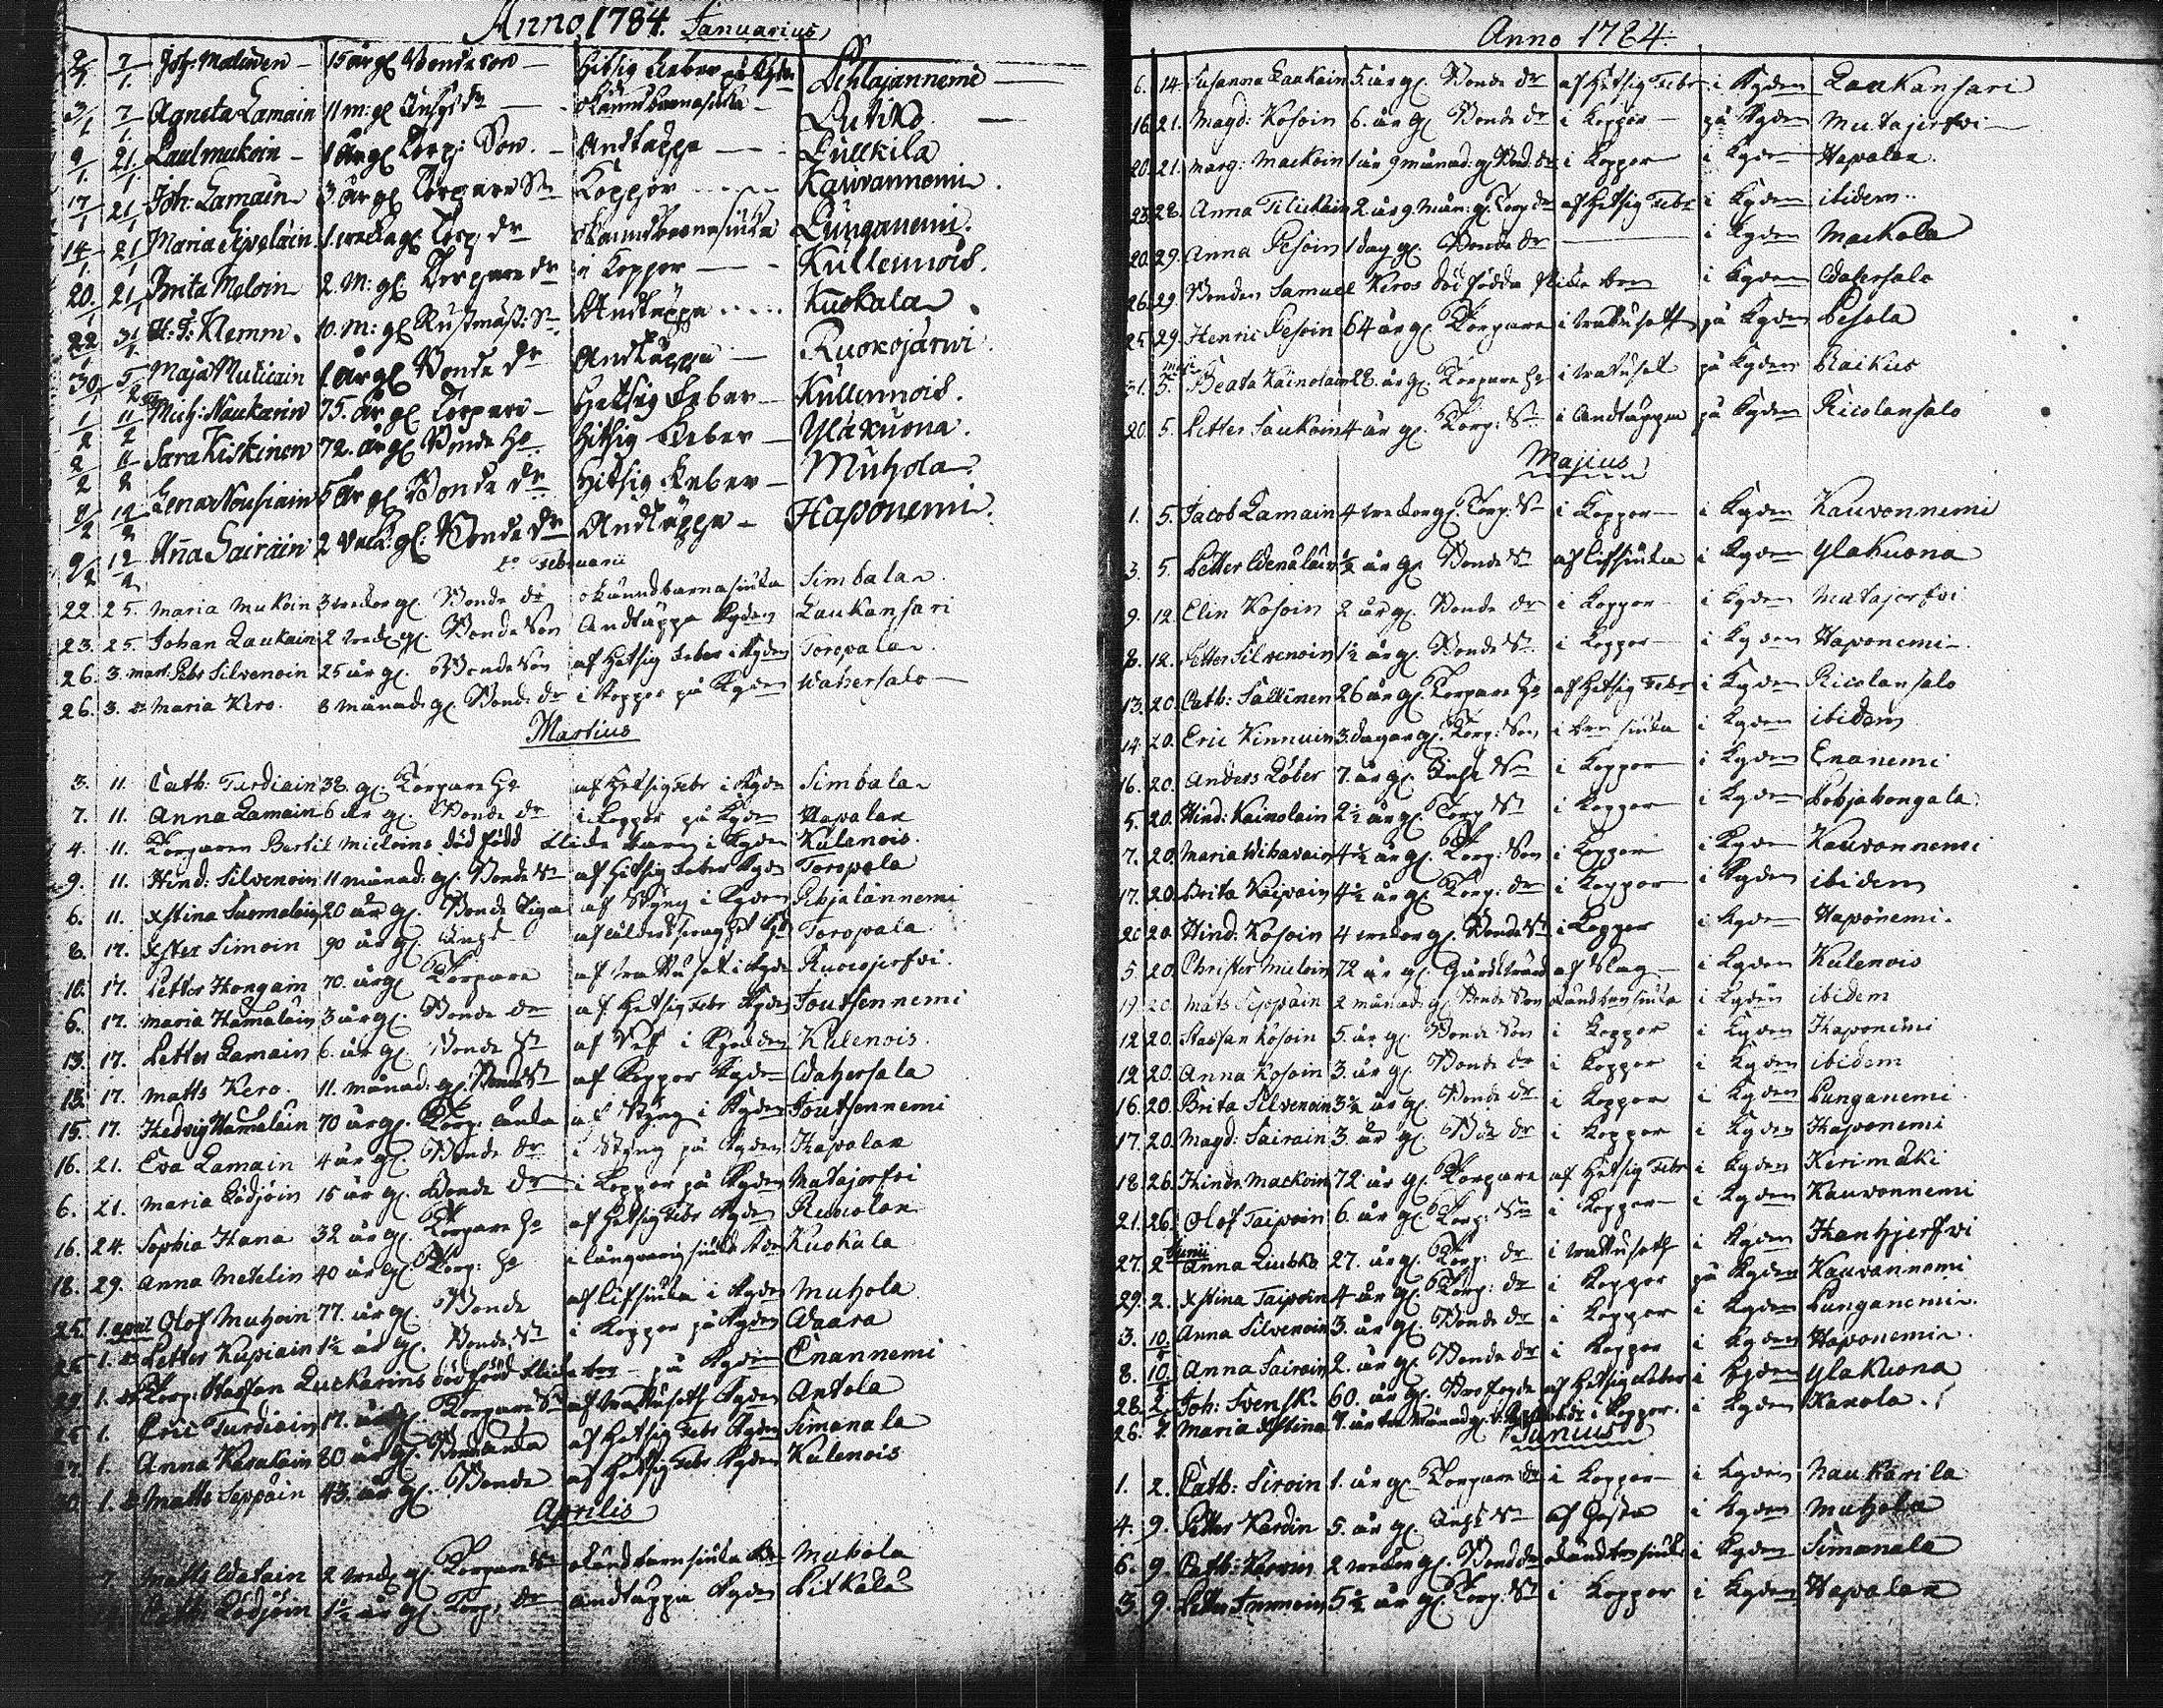 Anno 1784. Januarius
2/1 7/1 Joh: Malinen 15 år gl Bonde son hitsig feber på Kyden Pehlajannemi
3/1 7/1 Agneta Lamain 11 m: gl okunnd barnasiuka
9/1 21/1 Paul mukoin 1 år gl Torp: Son Andtäppa Pullkila
17/1 21/1 Joh: Lamain 3 år gl Torpare Sn Koppor Kauvannemi
14/1 21/1 Maria 1 wecka gl Torp dr okunnd barnasiuka Punganemi.
20/1 21/1 Brita Moloin 2. m: gl. Torpare dr i Koppor Kullennois.
22/1 31/1 H. F. Klemm. 10. m: gl Rustmäst: Sn Andtäppa Kuokala
30/1 5/2 Maja Mulicain 1 år gl Bonde dr Andtäppa Ruokojärwi
1/2 11/2 Mich: Naukarin 75. år gl Torpare Hetsig feber Kullennois.
2/2 11/2 Sara Kiskinen 72. år gl Bonde ho Hitsig feber Yläkuona.
8/2 12/2 Lena Nousiain 5 år gl Bonde dr Hitsig feber Muhola
9/2 12/2 Anna Sairain 2 veck: gl. Bonde dr Andtäppa Haponemi
Februarii
22. 25. Maria Mukoin 3 weckor gl. Bonde dr okunnd barnasiuka Simbala
23. 25. Johan Laukain 2 weck gl. Bonde Son Andtäppa Kyden Laukansari
26. 3. mart. Petr Silvenoin 25 år gl. Bonde Son af Hetsig feber i Kyden Toropala
26. 3. Maria Kero. 8 månad. gl. Bond. dr i Koppor på Kyden Wahersalo
Martius
3. 11. Cath: Turdiain 38. gl. Torpare ho af Hetsig Febr i Kyden Simbala
7. 11. Anna Lamain 6 år gl. Bonde dr i Koppor på Kyden Hapalax
4. 11. Torparen Bertil Micloins död född flicko barn i Kyden Kulenois.
9. 11. Hind: Silvenoin 11 månad: gl. Bonde Sn af Hitsig feber Kyden Toropala
6. 11. Xstina Suomalain 20 år gl. Bonde Piga af Styng i Kyden Pehjalannemi
8. 17. Xster Simoin 90 år gl. Inhs af ålderdomsvaghet Toropala
10. 17. Petter Hongain 70. år gl. Torpare af wattusot i Kyden Ruocojerfvi.
6. 17. Maria Hamalain 3 år gl. Bonde dr af Hetsig Febr Kyden Joutsennemi
13. 17. Petter Lamain 6. år gl. Bonde Sn af i Kyrdden Kulenois.
13. 17. Matts Kero. 11. månad: gl. Bonde Sn af Koppor Kyden Wahersala
15. 17. Hedvig Hamalain 70 år gl. Torp. Enka af Styng i Kyden Joutsennemi
16. 21. Eva Lamain 4 år gl. Bonde dr i Styng på Kyden Hapalax
6. 21. Maria Lödjöin 15 år gl. Bonde dr i Koppor på Kyden Matajerfvi
16. 24. Sophia Hana 32 år gl. Torpare ho af Hetsig Febr Kyden
18. 29. Anna Metelin 40 år gl. Torp: ho i långwarig siuka Kuokala
25. 1. april Olof Muhoin 77. år gl. Bonde af lifsiuka i Kyden Muhola
1. Petter Kupiain 1½ år gl. Bonde Sn i Koppor på Kyden Waara
29. 1. Torp: Staffan Luckarins död född flicko barn på Kyden Enannemi
1. Eric Turdiain 17. år gl. Torpare Sn af wattusott Kyden Antola
27. 1. Anna Karalain 80 år gl. Bond Enka af Hetsig Febr Kyden Simanala
1. Matts Seppain 43. år gl. Bonde af Hetsig Febr. Kyden Kulenois
Aprilis
7. Matts Watain 2 weck. gl. Torpare Sn okundbarnsiuka Muhola
Cath: Lödjöin 1½ år gl. Torp: dr Andtäppa Kyden Pitkälä
Anno 1784.
6. 14. Susanna Laukain 5. år gl. Bonde dr af Hetsig Febr i Kyden Laukansari
16. 21. Magd: Kosoin 6. år gl. Bonde dr i Koppor på Kyden Matajerfvi
20. 21. Marg: Mackoin 1 år 9 månad: gl. Bond. dr i Koppor i Kyden Hapalax
28. Anna 2. år 9. mån: gl. Torp dr af Hetsig Febr i Kyden ibidem.
20. 29. Anna Pesoin 1 dag gl. Bonde dr i Kyden Mackola
26. 29. Bonden Samuel Keros död födda flicko barn i Kyden Wahersalo
25. 29. Henric Pesoin 64 år gl. Torpare i wattusott på Kyden Pesola
31. 5. Maji Beata Kainolain 28. år gl. Torpare ho i wattusot på Kyden
20. 5. Petter Laukain 4 år gl. Torp: Sn i Andtäppa på Kyden Ricolansalo
Majius
1. 5. Jacob Lamain 4 weckor gl. Torp: Sn i Koppor i Kyden Kauvonnemi
3. 5. Petter Wenäläin ½ år gl. Bonde Sn af lifsiuka i Kyden Ylakuona
9. 12. Elin Kosoin 2 år gl. Bonde dr i Koppor i Kyden Matajerfvi
8. 12. Petter Silvenoin 1½ år gl. Bonde Sn i Koppor i Kyden Haponemi
13. 20. Cath: Sallinen 26 år gl. Torpare ho af Hetsig Febr i Kyden Ricolansalo
14. 20. Eric Kinnuin 3. dagar gl. Torp: Son i barnsiuka i Kyden ibidem
16. 20. Anders Löber 7. år gl. Inhs Sn i Koppor i Kyden Enanemi
5. 20. Hind: Kainolain 2½ år gl. Torp Sn i Koppor i Kyden Pohjakongala
7. 20. Maria Wihavain 4½ år gl. Torp: Son i Koppor i Kyden Kauvonnemi
17. 20. Brita Kaipain 4½ år gl. Torp: dr i Koppor i Kyden ibidem
20. Hind: Kosoin 4 weckor gl. Bonde Sn i Koppor i Kyden Haponemi.
5. 20. Christer Micloin 72 år gl. af Slag i Kyden Kulenois
19. 20. Mats Seppäin 2 månad: gl. Bonde Son okundbarnsiuka i Kyden ibidem
12. 20. Staffan Kosoin 5. år gl. Bonde Son i Koppor i Kyden Haponemi
12. 20. Anna Kosoin 3. år gl. Bonde dr i Koppor i Kyden ibidem
16. 20. Brita Silvenoin 3½ år gl. Bonde dr i Koppor i Kyden Punganemi
17. 20. Magd: Sairain 3. år gl. Bde dr i Koppor i Kyden Haponemi
18. 26. Hindr. Mackoin 72 år gl. Torpare af Hetsig Febr i Kyden Kerimäki
21. 26. Olof Taipoin 6. år gl. Torp: Sn i Koppor i Kyden Kauvonnemi
27. 2 Junii Anna Liubko 27. år gl. Torp: dr i wattusott i Kyden Hanhjerfvi
29. 2. Xstina Taipoin 4 år gl. Torp: dr i Koppor på Kyden Kauvannemi
3. 10. Anna Silvenoin 3. år gl. Bonde dr i Koppor i Kyden Punganemi.
8. 10. Anna Sairain 2. år gl. Bonde dr i Koppor i Kyden Haponemi.
28. 2. Joh: Svensk. 60. år gl. Brofogde af Hetsig Feber i Kyden Ylakuona
26. Maria Xstina i Koppor. i Kyden Kakola.
Junius
1. 2. Cath: Siroin 1. år gl. Torpare dr i Koppor i Kyden Naukarila
4. 9. Petter Kardin 5. år gl. Inhs Sn af Hosta i Kyden Muhola
6. 9. Cath: 2 weckor gl. Bond dr okundbarnsiuka i Kyden Simanala
3. 9. Petter Immoin 5½ år gl. Torp: Sn i Koppor i Kyden Hapalax